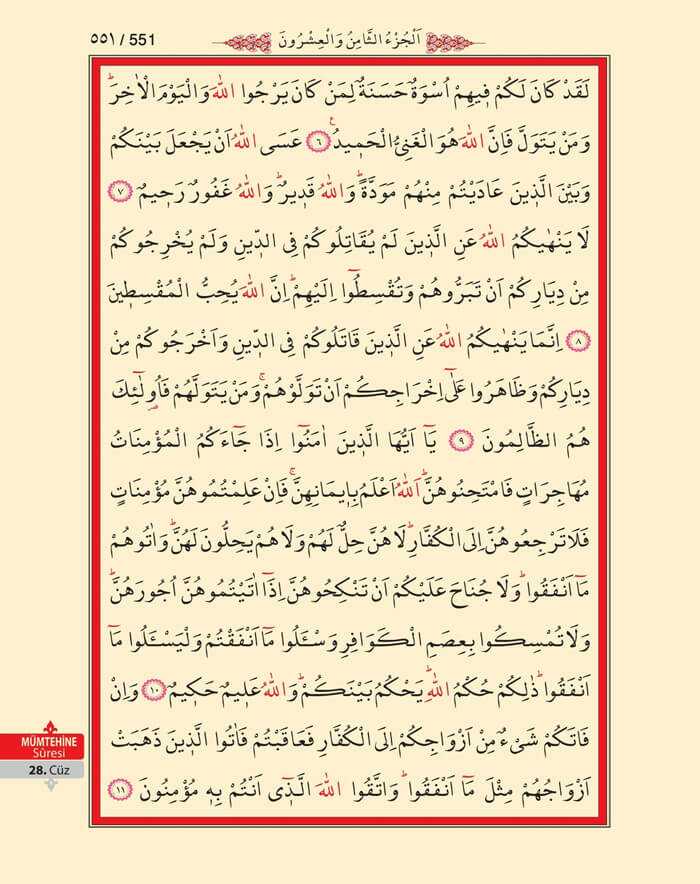 ٥٥١ / 551
اَلْجُزْءُ الثَّامِنُ وَالْعِشْرُونَ
لَقَدْ كَانَ لَكُمْ ف۪يهِمْ اُسْوَةٌ حَسَنَةٌ لِمَنْ كَانَ يَرْجُوا اللّٰهَ وَالْيَوْمَ الْاٰخِرَۜ
وَمَنْ يَتَوَلَّ فَاِنَّ اللّٰهَ هُوَ الْغَنِيُّ الْحَم۪يدُ۟ ﴿٦﴾ عَسَى اللّٰهُ اَنْ يَجْعَلَ بَيْنَكُمْ
وَبَيْنَ الَّذ۪ينَ عَادَيْتُمْ مِنْهُمْ مَوَدَّةًۜ وَاللّٰهُ قَد۪يرٌۜ وَاللّٰهُ غَفُورٌ رَح۪يمٌ ﴿٧﴾
لَا يَنْهٰيكُمُ اللّٰهُ عَنِ الَّذ۪ينَ لَمْ يُقَاتِلُوكُمْ فِي الدّ۪ينِ وَلَمْ يُخْرِجُوكُمْ
مِنْ دِيَارِكُمْ اَنْ تَبَرُّوهُمْ وَتُقْسِطُٓوا اِلَيْهِمْۜ اِنَّ اللّٰهَ يُحِبُّ الْمُقْسِط۪ينَ
﴿٨﴾ اِنَّمَا يَنْهٰيكُمُ اللّٰهُ عَنِ الَّذ۪ينَ قَاتَلُوكُمْ فِي الدّ۪ينِ وَاَخْرَجُوكُمْ مِنْ
دِيَارِكُمْ وَظَاهَرُوا عَلٰٓى اِخْرَاجِكُمْ اَنْ تَوَلَّوْهُمْۚ وَمَنْ يَتَوَلَّهُمْ فَاُو۬لٰٓئِكَ
هُمُ الظَّالِمُونَ ﴿٩﴾ يَٓا اَيُّهَا الَّذ۪ينَ اٰمَنُٓوا اِذَا جَٓاءَكُمُ الْمُؤْمِنَاتُ
مُهَاجِرَاتٍ فَامْتَحِنُوهُنَّۜ اَللّٰهُ اَعْلَمُ بِا۪يمَانِهِنَّۚ فَاِنْ عَلِمْتُمُوهُنَّ مُؤْمِنَاتٍ
فَلَا تَرْجِعُوهُنَّ اِلَى الْكُفَّارِۜ لَا هُنَّ حِلٌّ لَهُمْ وَلَا هُمْ يَحِلُّونَ لَهُنَّۜ وَاٰتُوهُمْ
مَٓا اَنْفَقُواۜ وَلَا جُنَاحَ عَلَيْكُمْ اَنْ تَنْكِحُوهُنَّ اِذَٓا اٰتَيْتُمُوهُنَّ اُجُورَهُنَّۜ
وَلَا تُمْسِكُوا بِعِصَمِ الْكَوَافِرِ وَسْـَٔلُوا مَٓا اَنْفَقْتُمْ وَلْيَسْـَٔلُوا مَٓا
اَنْفَقُواۜ ذٰلِكُمْ حُكْمُ اللّٰهِۜ يَحْكُمُ بَيْنَكُمْۜ وَاللّٰهُ عَل۪يمٌ حَك۪يمٌ ﴿١٠﴾ وَاِنْ
فَاتَكُمْ شَيْءٌ مِنْ اَزْوَاجِكُمْ اِلَى الْكُفَّارِ فَعَاقَبْتُمْ فَاٰتُوا الَّذ۪ينَ ذَهَبَتْ
اَزْوَاجُهُمْ مِثْلَ مَٓا اَنْفَقُواۜ وَاتَّقُوا اللّٰهَ الَّذ۪ٓي اَنْتُمْ بِه۪ مُؤْمِنُونَ ﴿١١﴾
MÜMTEHİNE
Sûresi
28. Cüz